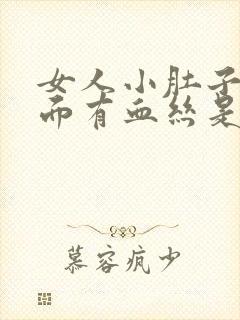 女人小肚子
而有血丝是
慕容疯少